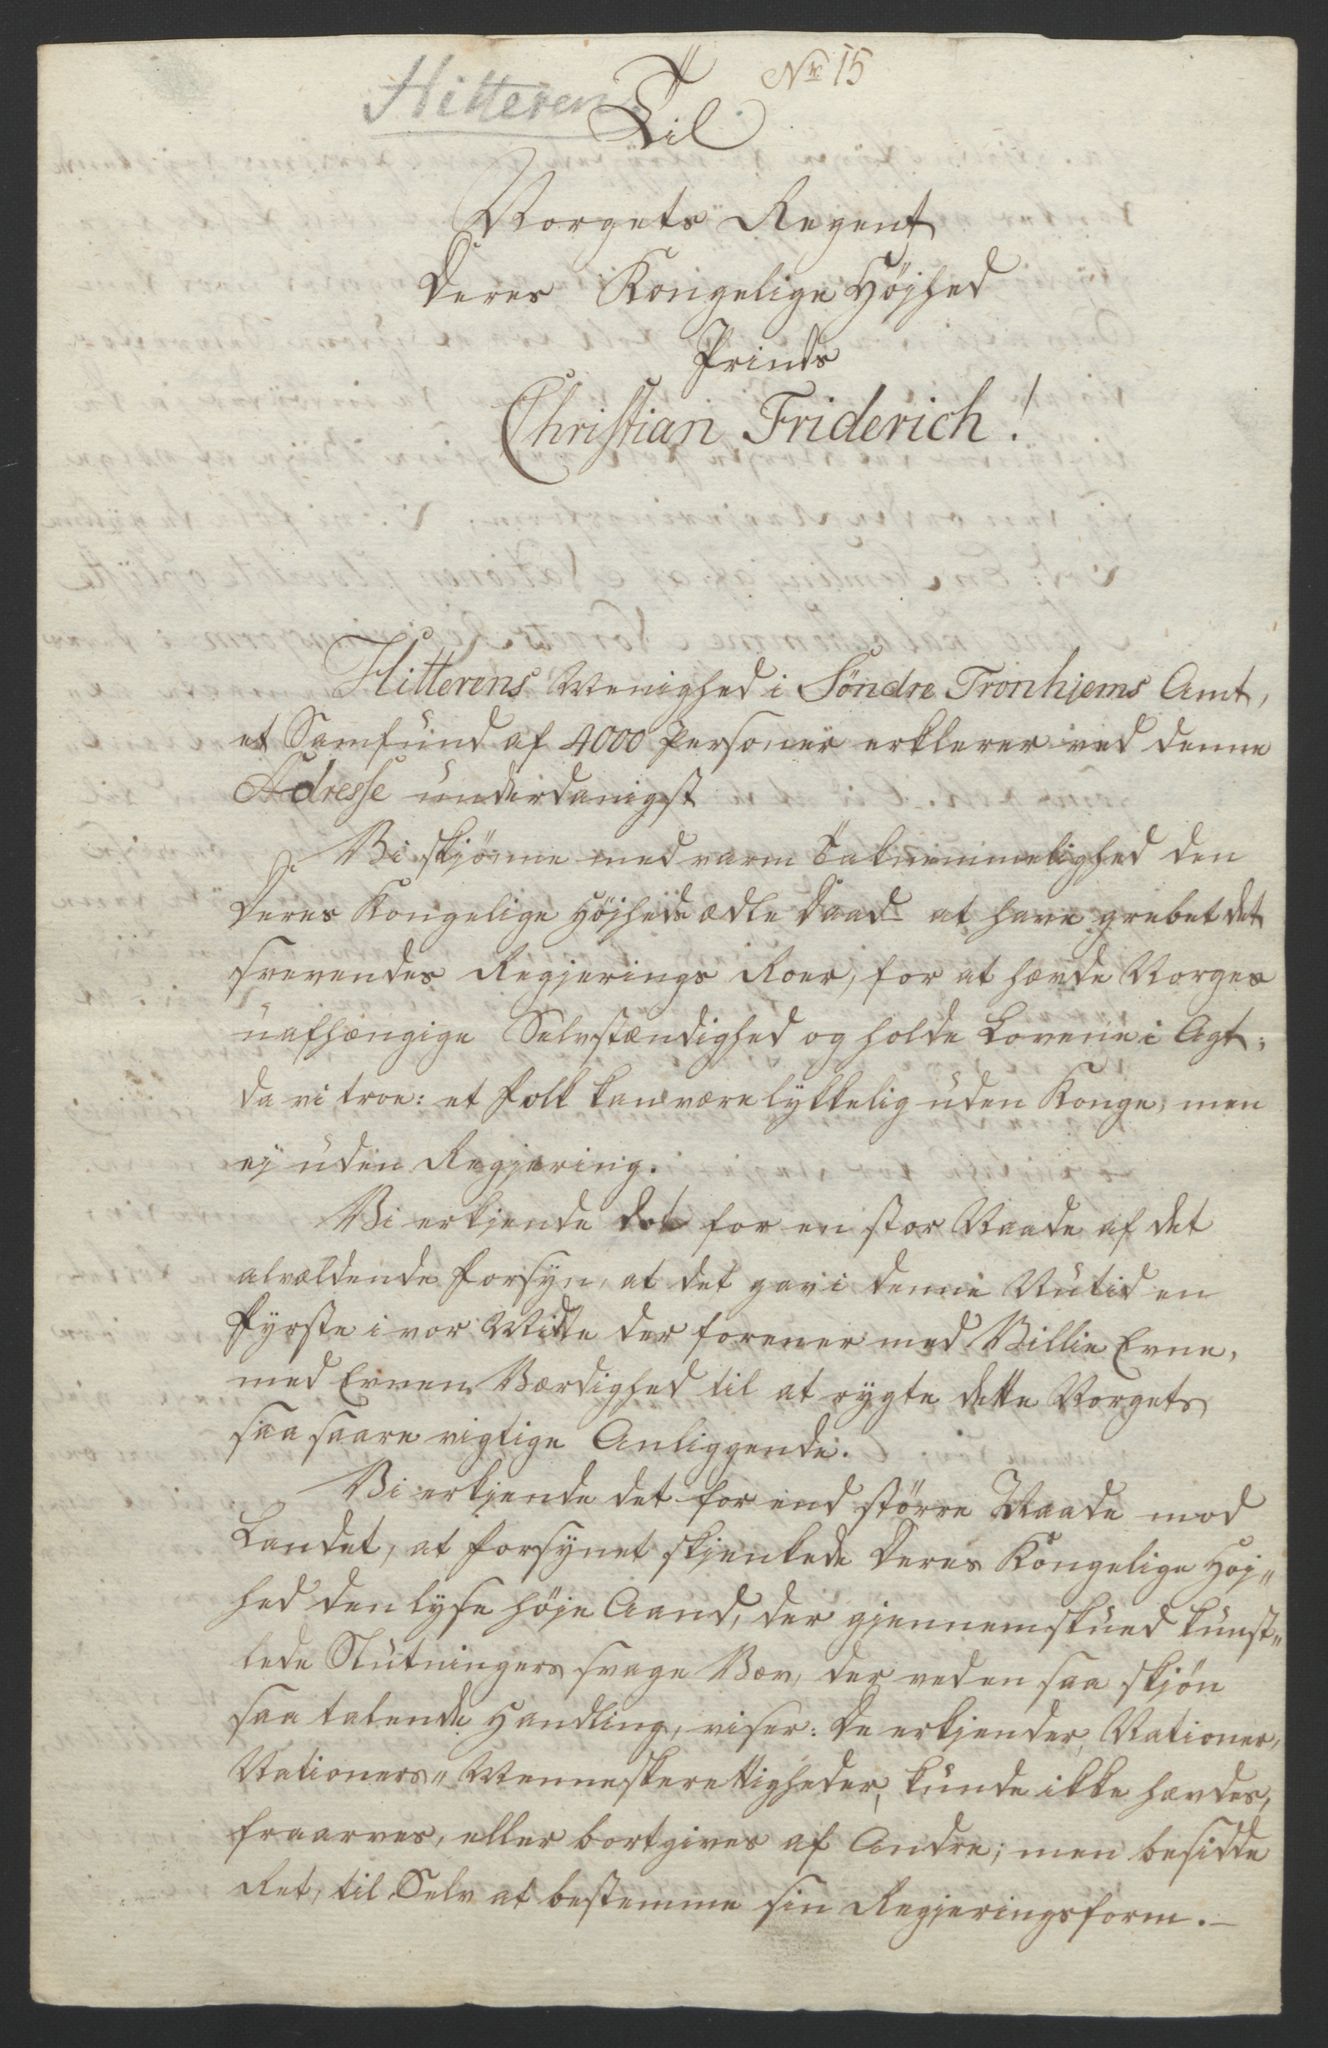 Hitteren
Nr 15
Til
Norgets Regent
Deres Kongelige Højhed
Prinds
Christian Friderich!
Hitterens Menighed i Söndre Tronhjems Amt,
et Samfund af 4000 Personer erklerer ved denne
Adresse underdanigst
Vi skjønne med varm Taknemmelighed den
Deres Kongelige Højheds ædle Daad at have grebet det
svevendes Regjerings Roer, for at hævde Norges
uafhængige Selvstændighed og holde Lovene i Agt;
da vi troe: et Folk kan være lykkelig uden Konge, men
ej uden Regjering.
Vi erkjende det for en stor Naade af det
alvældende Forsyn, at det gav i denne Nutid en
Fyrste i vor Midte der forener med Villie Evne,
med Evnen Værdighed til at rygte dette Norgets
saa saare vigtige Anliggende.
Vi erkjende det for end större Naade mod
Landet, at Forsynet skjenkede Deres Kongelige Høj„
hed den lyse høje Aand, der gjennemskued kunst„
lede Slutningers svage Væv, der ved en saa skjøn
saa talende Handling, viser: De erkjender, Nationer,
Nationers„ Menneskerettigheder, kunde ikke hævdes,
fraarves, eller bortgives af Andre; men besidde
Ret, til Selv at bestemme sin Regjeringsform.-